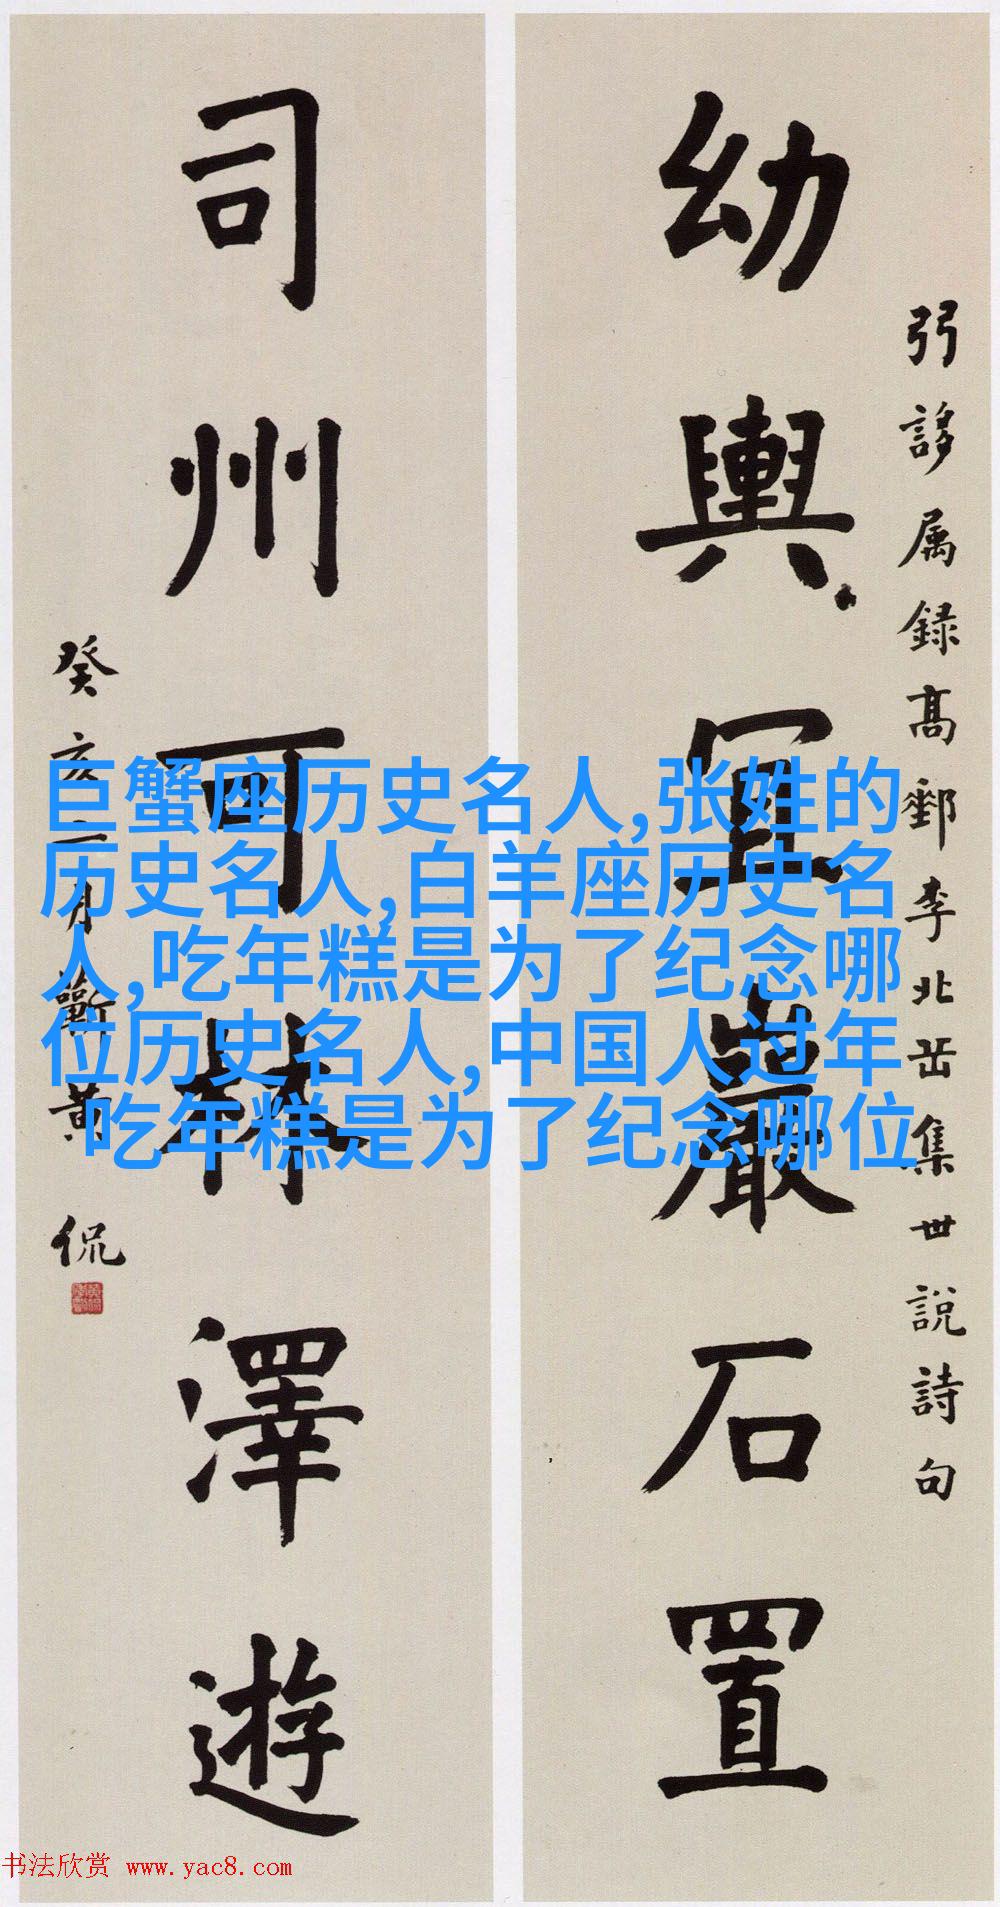 弜誃属録高郵李北岳集世說詩句
幼輿宜巖石置
司州可林澤遊
癸亥二月蘄黄侃
巨蟹座历史名人,张姓的
历史名人,白羊座历史名
人,吃年糕是为了纪念哪
位历史名人,中国人过年
吃年糕是为了纪念哪位
书法欣赏 www.yac8.com